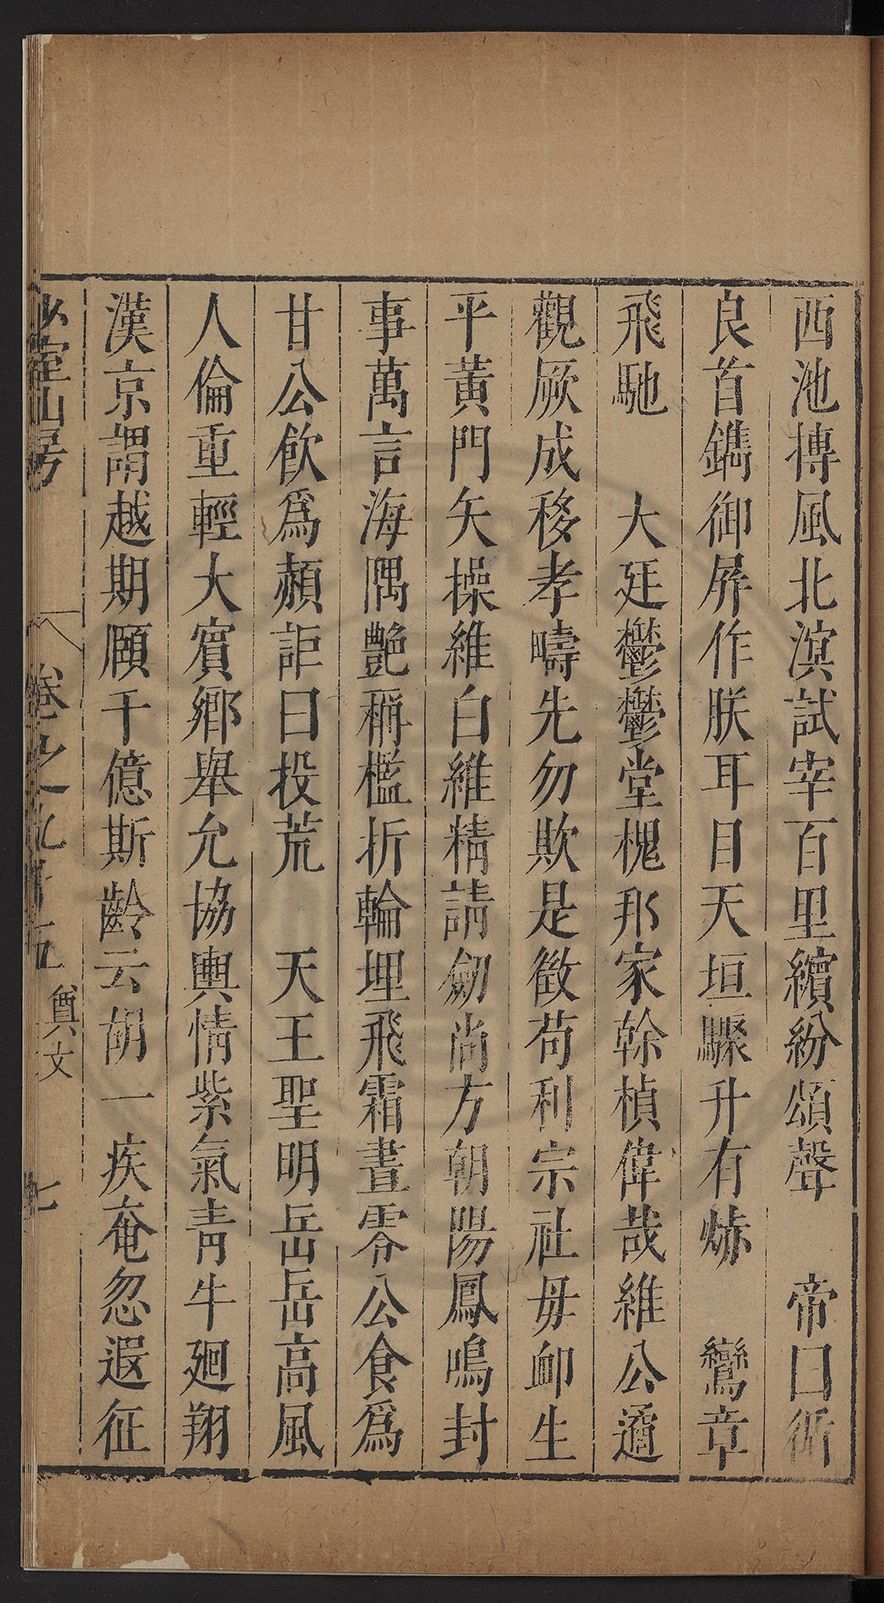 西池搏風北溟試宰百里繽紛頌聲　帝曰循
良首鐫御屏作朕耳目天垣驟升有赫　鸞章
飛馳　大廷鬱鬱堂槐邦家幹楨偉哉維公遹
觀厥成移孝疇先勿欺是徵苟利宗社毋卹生
平黃門矢操維白維精請劒尚方朝陽鳳鳴封
事萬言海隅艷稱檻折輪埋飛霜晝零公食爲
甘公飲爲頮詎曰投荒　天王聖明岳岳高風
人倫重輕大賓鄉舉允協輿情紫氣青牛廻翔
漢京謂越期頤千億斯齡云胡一疾奄忽遐征
少室山房　卷之九十五　奠文　七